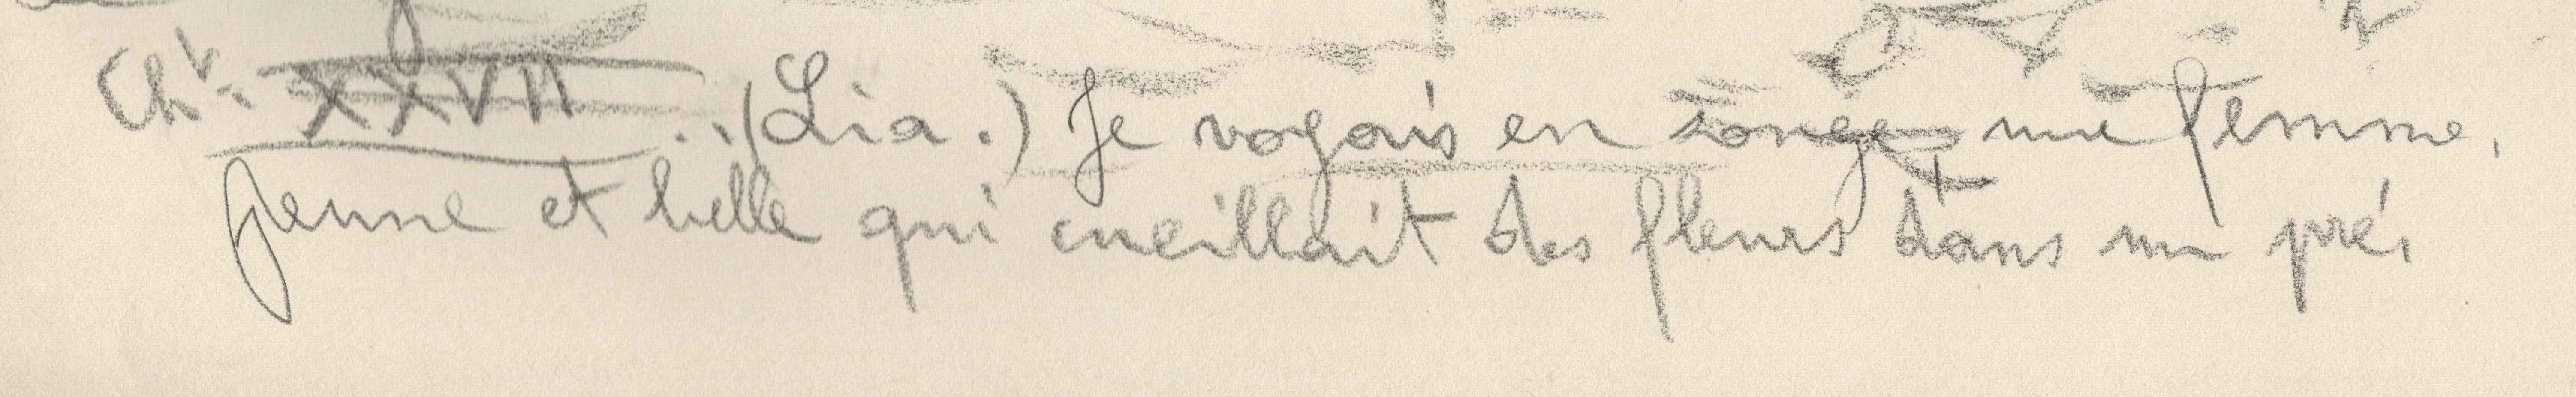 Chr. XXVII ..(Lia.) Je voyais en songe une femme,
jeune et belle qui cueillait des fleurs dans un pré,